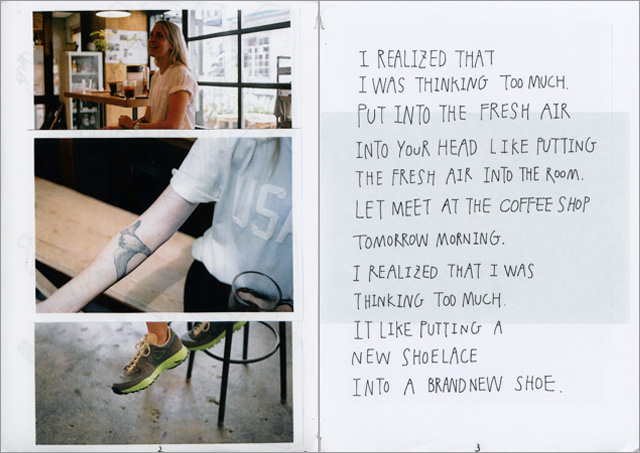 USA
2
I REALIZED THAT
I WAS THINKING TOO MUCH.
PUT INTO THE FRESH AIR
INTO YOUR HEAD LIKE PUTTING
THE FRESH AIR INTO THE ROOM.
LET MEET AT THE COFFEE SHOP
TOMORROW MORNING.
I REALIZED THAT I WAS
THINKING TOO MUCH.
IT LIKE PUTTING A
NEW SHOELACE
INTO A BRANDNEW SHOE.
3